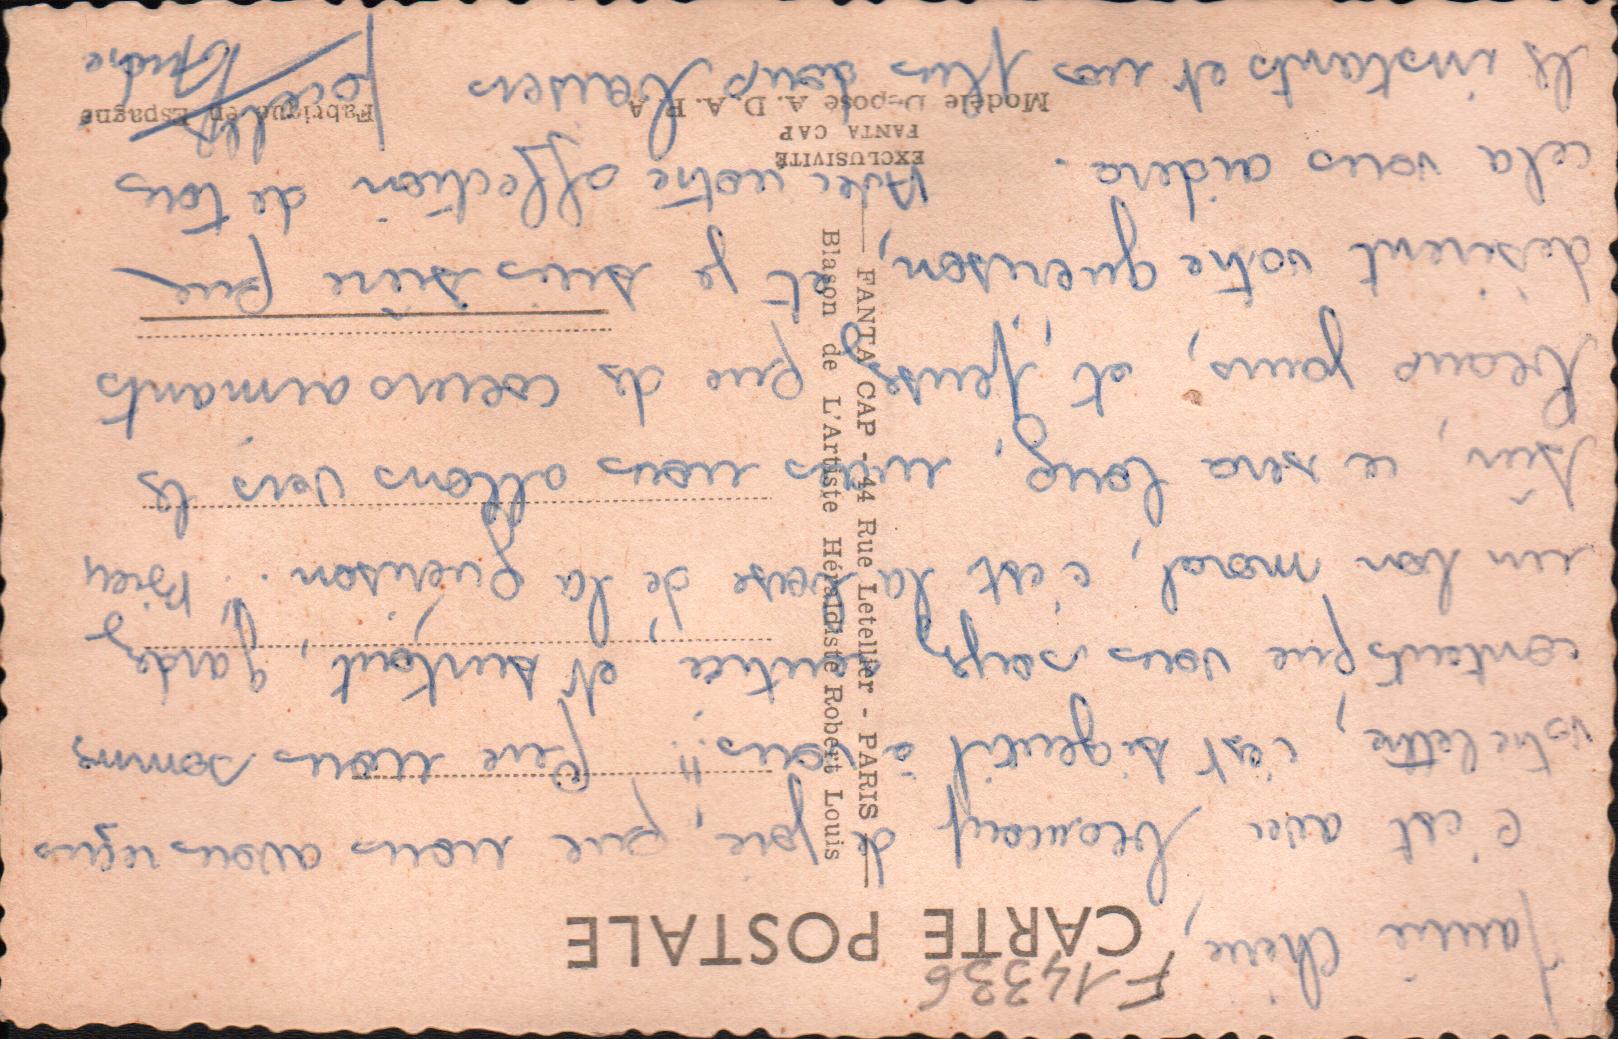 F 14336
CARTE POSTALE
chérie,
c'est avec beaucoup de joie, que nous avons reçus
votre lettre, c'est si gentil à vous!! Que nous sommes
contents que vous soyez rentrée, et surtout, gardez
un bon moral, c'est la base de la guérison. Bien
sûr, ce sera long, mais nous allons vers les
beaux jours, et pensez que des coeurs aimants
désirent votre guérison, et je suis sûre que
cela vous aidera. Avec notre affection de tous
les instants et nos plus doux baisers
André
FANTA CAP - 44 Rue Letellier - PARIS
Blason de L'Artiste Héraldiste Robert Louis
EXCLUSIVITÉ
FANTA CAP
Modèle Déposé A. D. A. P. A
Fabriqué en Espagne